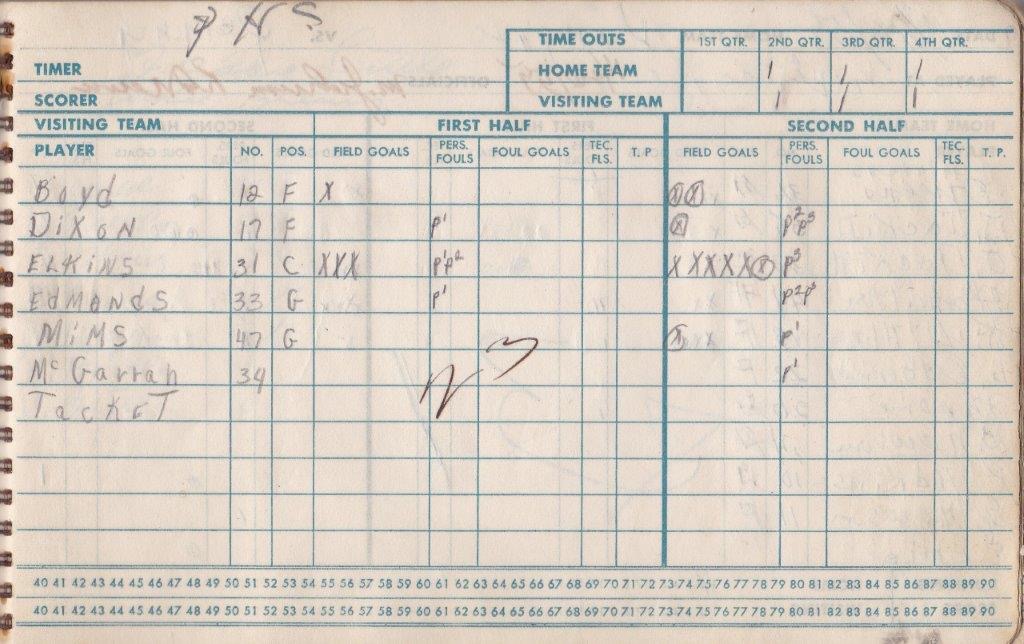 P H S.
TIME OUTS 1ST QTR. 2ND QTR. 3RD QTR. 4TH QTR.
TIMER HOME TEAM / / /
SCORER VISITING TEAM / / /
VISITING TEAM FIRST HALF SECOND HALF
PLAYER NO. POS. FIELD GOALS PERS. FOULS FOUL GOALS TEC. FLS. T. P FIELD GOALS PERS. FOULS FOUL GOALS TEC. FLS. T. P.
Boyd 12 F X X X
DiXON 17 F P1 X P2 P3
ELKiNS 31 C XXX P1 P2 X X X X X X P3
EdMONdS 33 G P1 P2 P3
MiMS 47 G X X P1
McGarrah 34 P1
TackeT
40 41 42 43 44 45 46 47 48 49 50 51 52 53 54 55 56 57 58 59 60 61 62 63 64 65 66 67 68 69 70 71 72 73 74 75 76 77 78 79 80 81 82 83 84 85 86 87 88 89 90
40 41 42 43 44 45 46 47 48 49 50 51 52 53 54 55 56 57 58 59 60 61 62 63 64 65 66 67 68 69 70 71 72 73 74 75 76 77 78 79 80 81 82 83 84 85 86 87 88 89 90